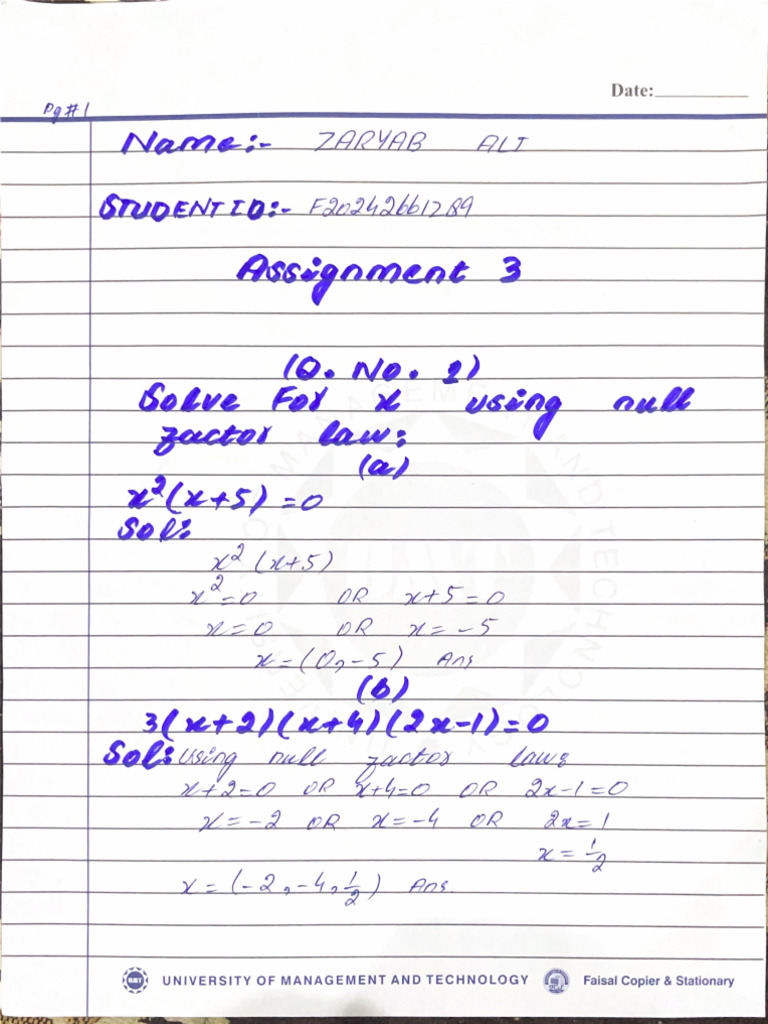 Date:
Pg#1
Name:- ZARYAB ALI
STUDENT ID:- F20242661289
Assignment 3
(Q. No. 1)
Solve For x using null
factor law:
(a)
x²(x+5) = 0
Sol:
x² (x+5)
x²=0 OR x+5=0
x=0 OR x=-5
x=(0,-5) Ans
(b)
3(x+2)(x+4)(2x-1)=0
Sol: using null factor law:
x+2=0 OR x+4=0 OR 2x-1=0
x=-2 OR x=-4 OR 2x=1
x=1/2
x=(-2,-4,1/2) Ans.
UNIVERSITY OF MANAGEMENT AND TECHNOLOGY Faisal Copier & Stationary